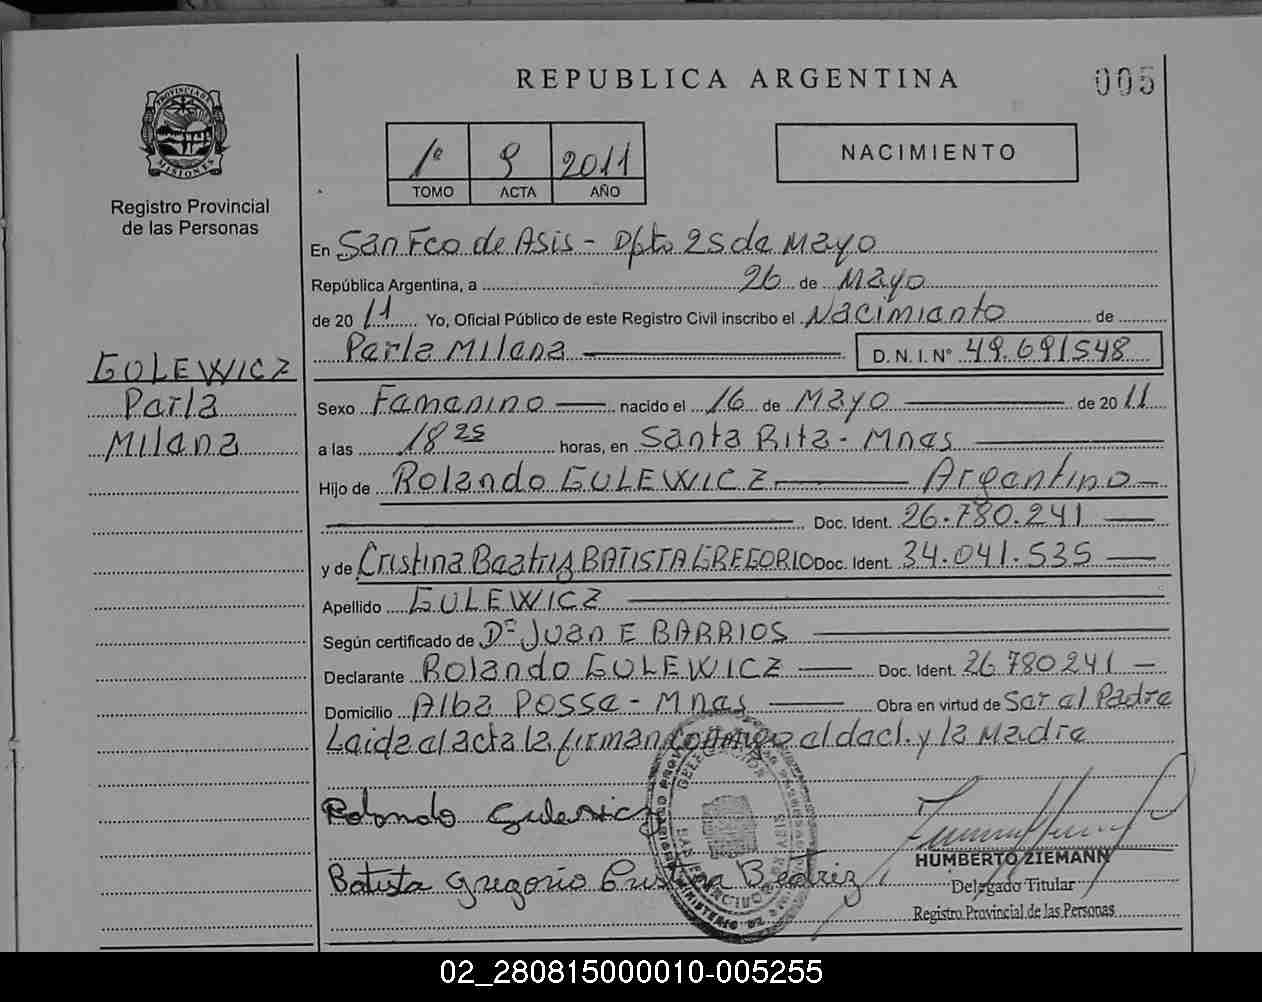 REPUBLICA ARGENTINA
005
PROVINCIA DE
MISIONES
Registro Provincial
de las Personas
1º 9 2011
TOMO ACTA AÑO
NACIMIENTO
En San Fco de Asis - Dpto 25 de Mayo
República Argentina, a 26 de Mayo
de 2011 Yo, Oficial Público de este Registro Civil inscribo el Nacimiento de
Perla Milena D.N.I. Nº 49.691548
GULEWICZ
Perla
Milena
Sexo Femenino nacido el 16 de Mayo de 2011
a las 18 25 horas, en Santa Rita - Mnes
Hijo de Rolando GULEWICZ Argentino
Doc. Ident. 26.780.241
y de Cristina Beatriz BATISTA GREGORIO Doc. Ident. 34.041.535
Apellido GULEWICZ
Según certificado de Dr Juan E BARRIOS
Declarante Rolando GULEWICZ Doc. Ident. 26780241
Domicilio Alba Posse - Mnes Obra en virtud de Ser el Padre
Leida el acta la firman conmigo el decl. y la Madre
Rolando Gulewicz
Batista Gregorio Cristina Beatriz
HUMBERTO ZIEMANN
Delegado Titular
Registro Provincial de las Personas
02_280815000010-005255